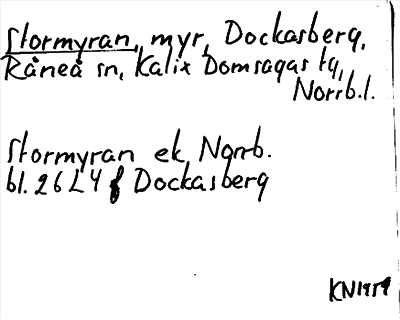 Stormyran, myr, Dockasberg,
Råneå sn, Kalix Domsagas tg,
Norrb.l.
Stormyran ek Norrb.
bl. 26 L4 f Dockasberg
KN1959